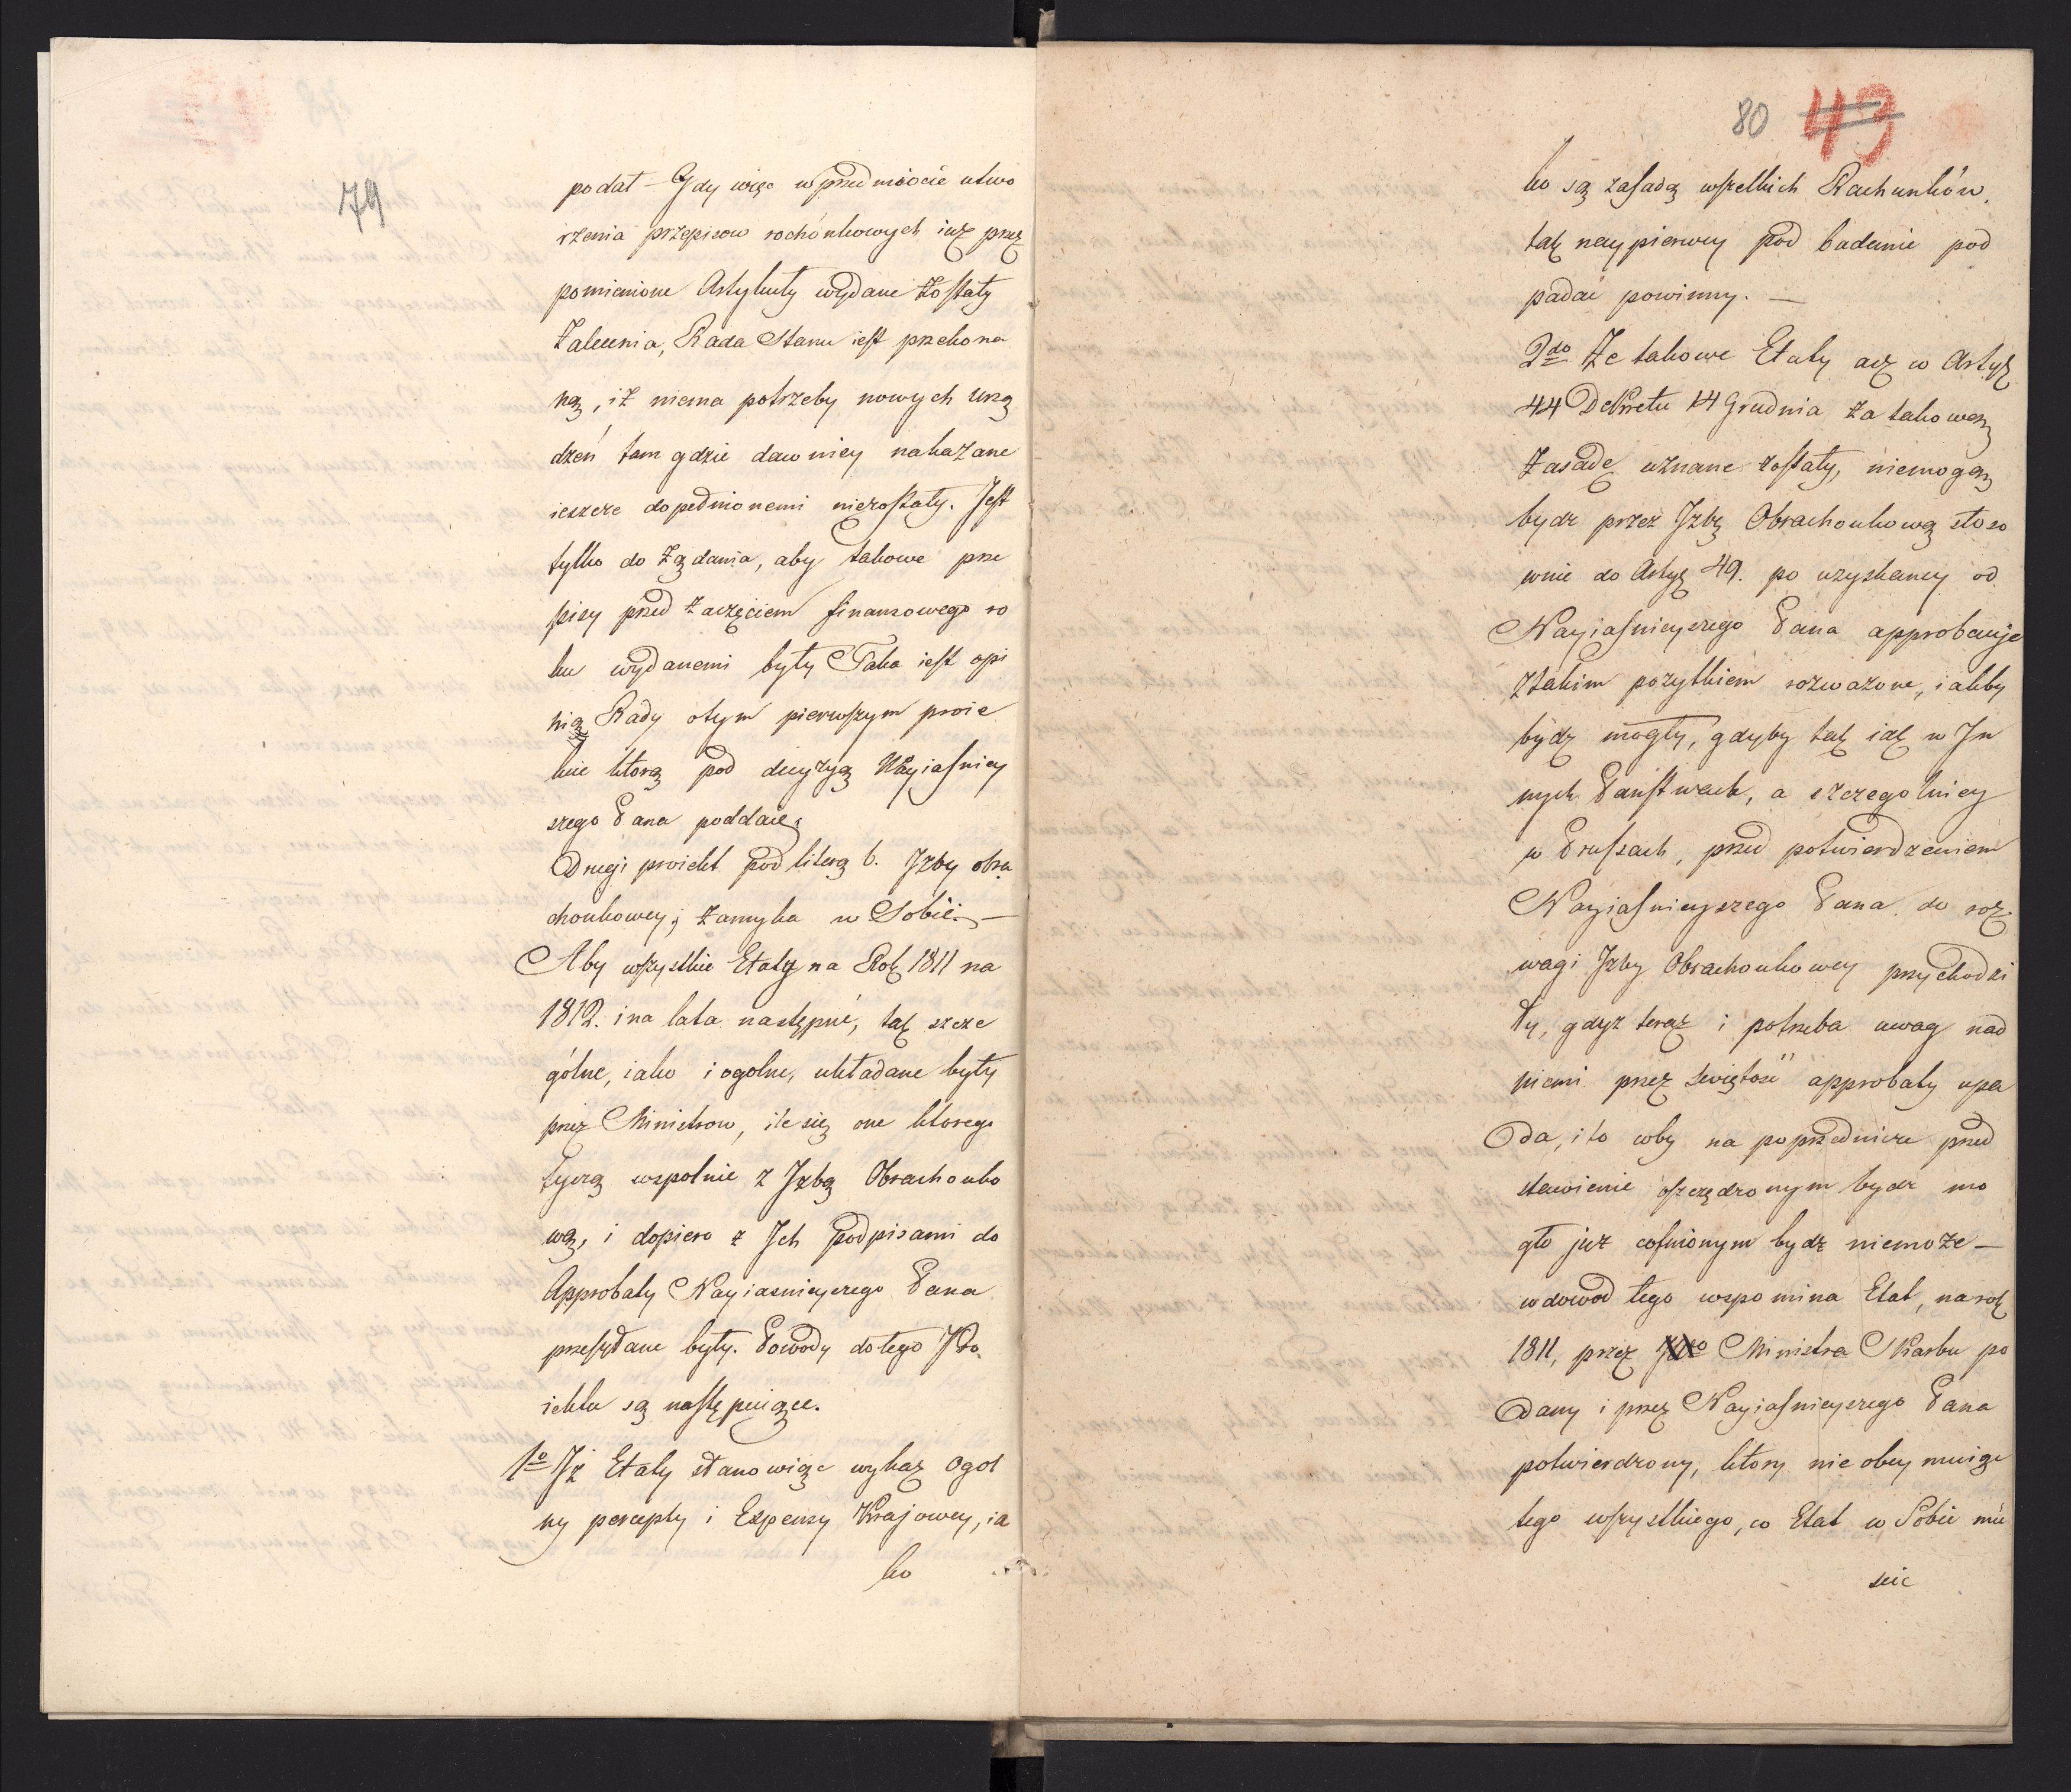 79
podał – Gdy więc w przedmiocie utwo
rzenia przepisow rochónkowych iuż przez
pomienione Artykuły wydane zostały
Zalecenia, Rada Stanu iest przekona
ną, iż niema potrzeby nowych urzą
dzeń tam gdzie dawniey nakazane
ieszcze dopełnionemi niezostały. Jest
tylko do żądania, aby takowe prze
pisy przed zaczęciem finansowego ro
ku wydanemi były Taka iest opi
nia Rady otym pierwszym proie
kcie ktorą pod decyzyą Nayiaśniey
szego Pana poddaie
Drugi proiekt pod literą b. Jzby obra
chonkowey, zamyka w Sobie. —
Aby wszystkie Etaty na Rok 1811 na
1812. i na lata następne, tak szcze
gólne, iako i ogolne, układane były
przez Ministrow, ile się one ktorego
tyczą wspolnie z Jzbą Obrachonko
wą, i dopiero z Jch podpisami do
Approbaty Nayiasnieyszego Pana
przesyłane były. Powody dotego Pro
iektu są następuiące.
1o Jż Etaty stanowiąc wykaz ogol
ny percepty i Expensy Krajowey, ia
ko
80 43
ko są zasadą wszelkich Rachunków,
tak naypierwey pod badanie pod
padać powinny. —
2do Że takowe Etaty acz w Artyk
44 Dekretu 14 Grudnia za takowąż
zasadę uznane zostały, niemogą
bydz przez Jzbę Obrachonkową stoso
wnie do Artyk 49. po uzyskaney od
Nayiaśnieyszego Pana approbacyje
z takim pożytkiem rozważone, iakby
bydz mogły, gdyby tak iak w Jn
nych Państwach, a szczegolniey
w Prussach, przed potwierdzeniem
Nayiaśnieyszego Pana do roz
wagi Jzby Obrachonkowey przychodzi
ły, gdyż teraz i potrzeba uwag nad
niemi przez swiętość approbaty upa
da, i to coby na poprzednicze przed
stawienie oszczędzonym bydz mo
gło już cofnionym bydz niemoże —
w dowod tego wspomina Etat, na rok
1811, przez Ministra Skarbu po
dany i przez Nayiaśnieyszego Pana
potwierdzony, ktory nie obeymuiąc
tego wszystkiego, co Etat w Sobie mie
scic